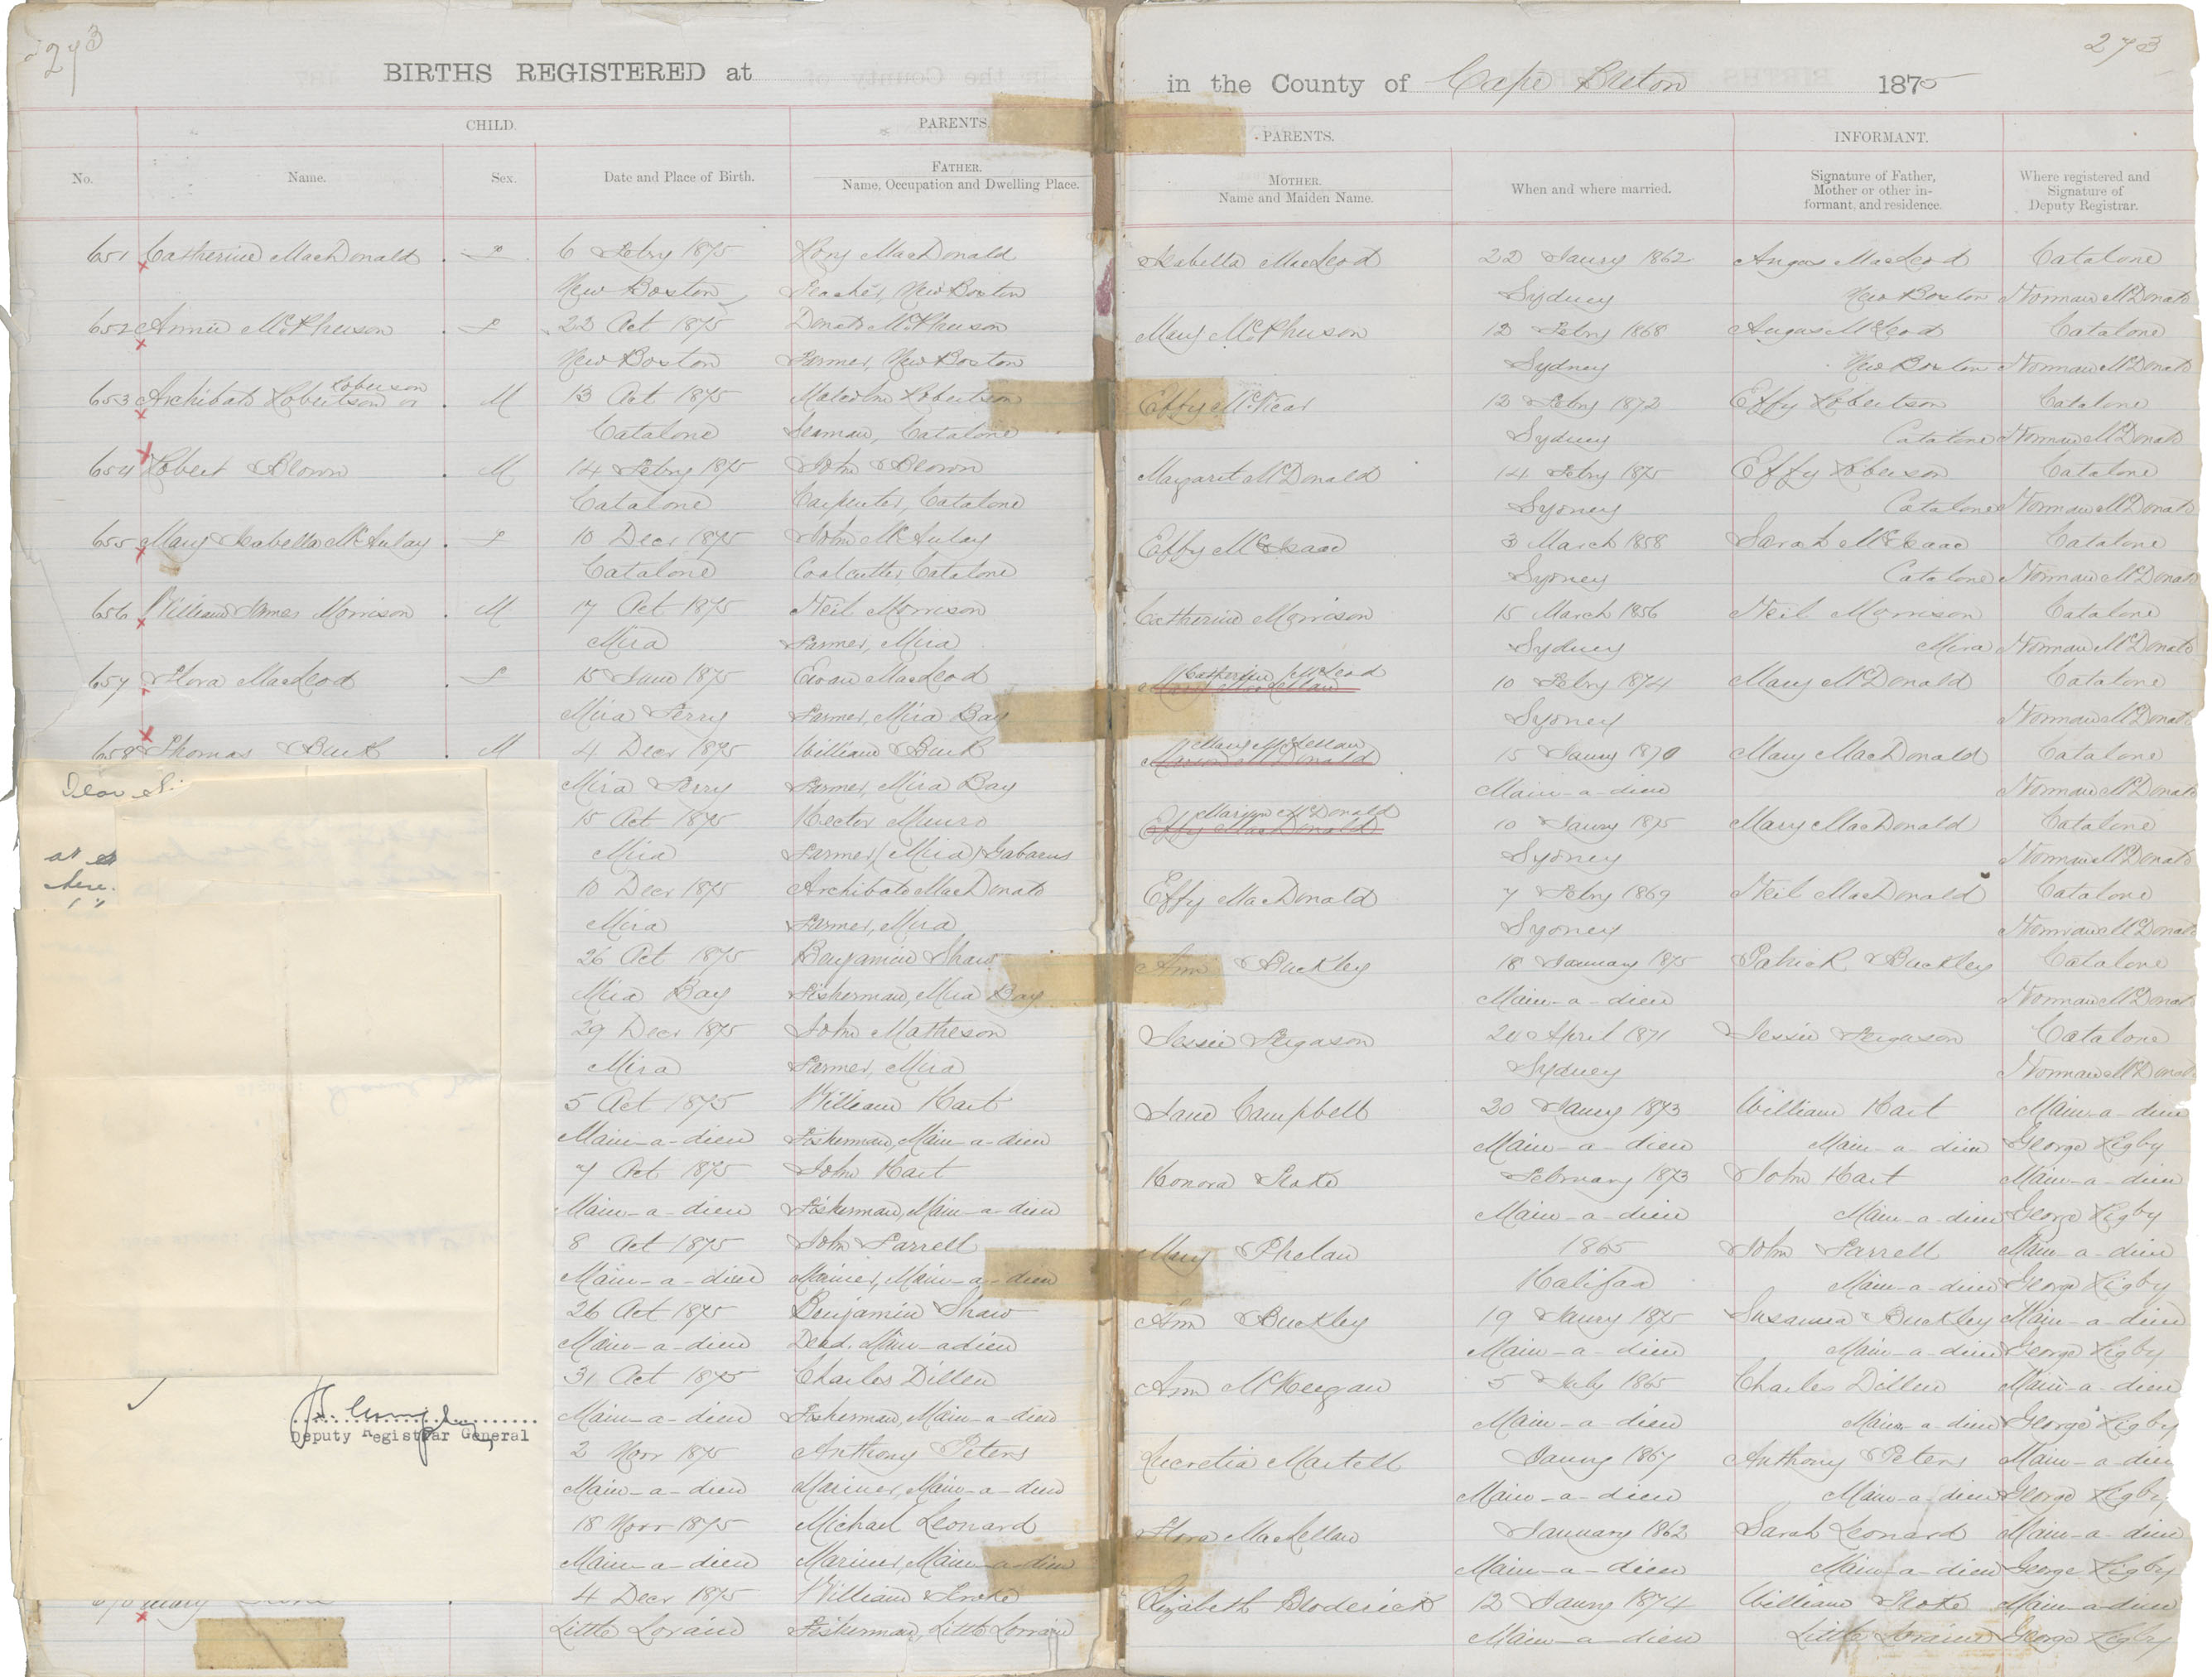 273
273
BIRTHS REGISTERED at
in the County of Cape Breton 1875
CHILD.
PARENTS
PARENTS.
INFORMANT.
No.
Name.
Sex.
Date and Place of Birth.
FATHER.
Name, Occupation and Dwelling Place.
MOTHER.
Name and Maiden Name.
When and where married.
Signature of Father,
Mother or other in-
formant, and residence.
Where registered and
Signature of
Deputy Registrar.
651 Catherine MacDonald F 6 Febry 1875 Rory MacDonald Isabella MacLeod 22 Jany 1862 Angus MacLeod Catalone
New Boston Teacher, New Boston Sydney New Boston Norman McDonald
652 Annie McPherson F 22 Oct 1875 Donald McPherson Mary McPherson 12 Febry 1868 Angus McLeod Catalone
New Boston Farmer, New Boston Sydney New Boston Norman McDonald
Roberson
653 Archibald Robertson or M 13 Oct 1875 Malcolm Robertson Effy McVicar 12 Febry 1872 Effy Robertson Catalone
Catalone Seaman, Catalone Sydney Catalone Norman McDonald
654 Robert Brown M 14 Febry 1875 John Brown Margaret McDonald 14 Febry 1875 Effy Roberson Catalone
Catalone Carpenter, Catalone Sydney Catalone Norman McDonald
655 Mary Isabella McAulay F 10 Decr 1875 John McAulay Effy McIsaac 3 March 1858 Sarah McIsaac Catalone
Catalone Coalcutter, Catalone Sydney Catalone Norman McDonald
656 William James Morrison M 17 Oct 1875 Neil Morrison Catherine Morrison 15 March 1856 Neil Morrison Catalone
Mira Farmer, Mira Sydney Mira Norman McDonald
Catherine McLeod
657 Flora MacLeod F 15 June 1875 Ewan MacLeod Mary MacLellan 10 Febry 1874 Mary McDonald Catalone
Mira Ferry Farmer, Mira Bay Sydney Norman McDonald
Mary McLellan
658 Thomas Burk M 4 Decr 1875 William Burk McDonald 15 Jany 1870 Mary MacDonald Catalone
Dear Sir
Mira Ferry Farmer, Mira Bay Main-a-dieu Norman McDonald
McDonald
15 Oct 1875 Hector Munro Effy MacDonald 10 Jany 1875 Mary MacDonald Catalone
Mira Farmer (Mira) Gabarus Sydney Norman McDonald
at
here.
10 Decr 1875 Archibald MacDonald Effy MacDonald 7 Febry 1869 Neil MacDonald Catalone
Mira Farmer, Mira Sydney Norman McDonald
26 Oct 1875 Benjamin Shaw Ann Buckley 18 January 1875 Patrick Buckley Catalone
Mira Bay Fisherman, Mira Bay Main-a-dieu Norman McDonald
29 Decr 1875 John Matheson Jessie Fergason 20 April 1871 Jessie Fergason Catalone
Mira Farmer, Mira Sydney Norman McDonald
5 Oct 1875 William Hart Jane Campbell 20 Jany 1873 William Hart Main-a-dieu
Main-a-dieu Fisherman, Main-a-dieu Main-a-dieu Main-a-dieu George Rigby
7 Oct 1875 John Hart Honora February 1873 John Hart Main-a-dieu
Main-a-dieu Fisherman, Main-a-dieu Main-a-dieu Main-a-dieu George Rigby
8 Oct 1875 John Farrell Mary Phelan 1865 John Farrell Main-a-dieu
Main-a-dieu Mariner, Main-a-dieu Halifax Main-a-dieu George Rigby
26 Oct 1875 Benjamin Shaw Ann Buckley 19 Jany 1875 Susanna Buckley Main-a-dieu
Main-a-dieu Dead. Main-adieu Main-a-dieu Main-a-dieu George Rigby
31 Oct 1875 Charles Dillen Ann McKeegan 5 July 1865 Charles Dillen Main-a-dieu
Main-a-dieu Fisherman, Main-a-dieu Main-a-dieu Main-a-dieu George Rigby
Deputy Registrar General
2 Novr 1875 Anthony Peters Lucretia Martell Jany 1867 Anthony Peters Main-a-dieu
Main-a-dieu Mariner, Main-a-dieu Main-a-dieu Main-a-dieu George Rigby
18 Novr 1875 Michael Leonard Flora MacLellan January 1862 Sarah Leonard Main-a-dieu
Main-a-dieu Mariner, Main-a-dieu Main-a-dieu Main-a-dieu George Rigby
670 Mary 4 Decr 1875 William Elizabeth Broderick 12 Jany 1874 William Main-a-dieu
Little Loraine Fisherman, Little Lorraine Main-a-dieu Little Loraine George Rigby